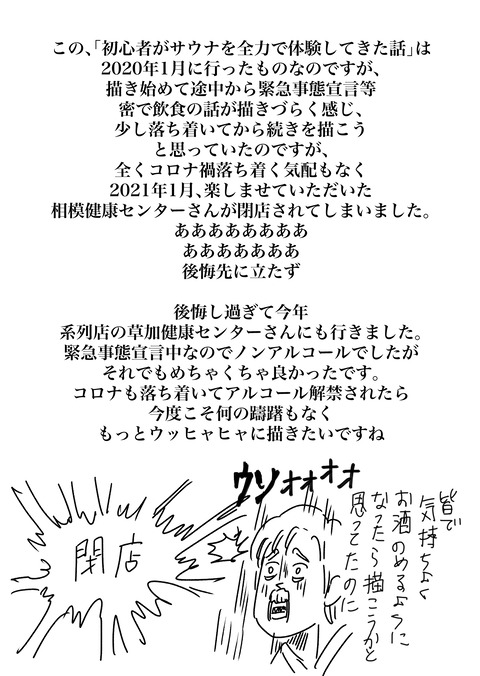 この、「初心者がサウナを全力で体験してきた話」は
2020年1月に行ったものなのですが、
描き始めて途中から緊急事態宣言等
密で飲食の話が描きづらく感じ、
少し落ち着いてから続きを描こう
と思っていたのですが、
全くコロナ禍落ち着く気配もなく
2021年1月、楽しませていただいた
相模健康センターさんが閉店されてしまいました。
ああああああああ
あああああああ
後悔先に立たず
後悔し過ぎて今年
系列店の草加健康センターさんにも行きました。
緊急事態宣言中なのでノンアルコールでしたが
それでもめちゃくちゃ良かったです。
コロナも落ち着いてアルコール解禁されたら
今度こそ何の躊躇もなく
もっとウッヒャヒャに描きたいですね
ウソォオォオ
皆で
気持ちよく
お酒のめるように
なったら描こうかと
思ってたのに
閉店